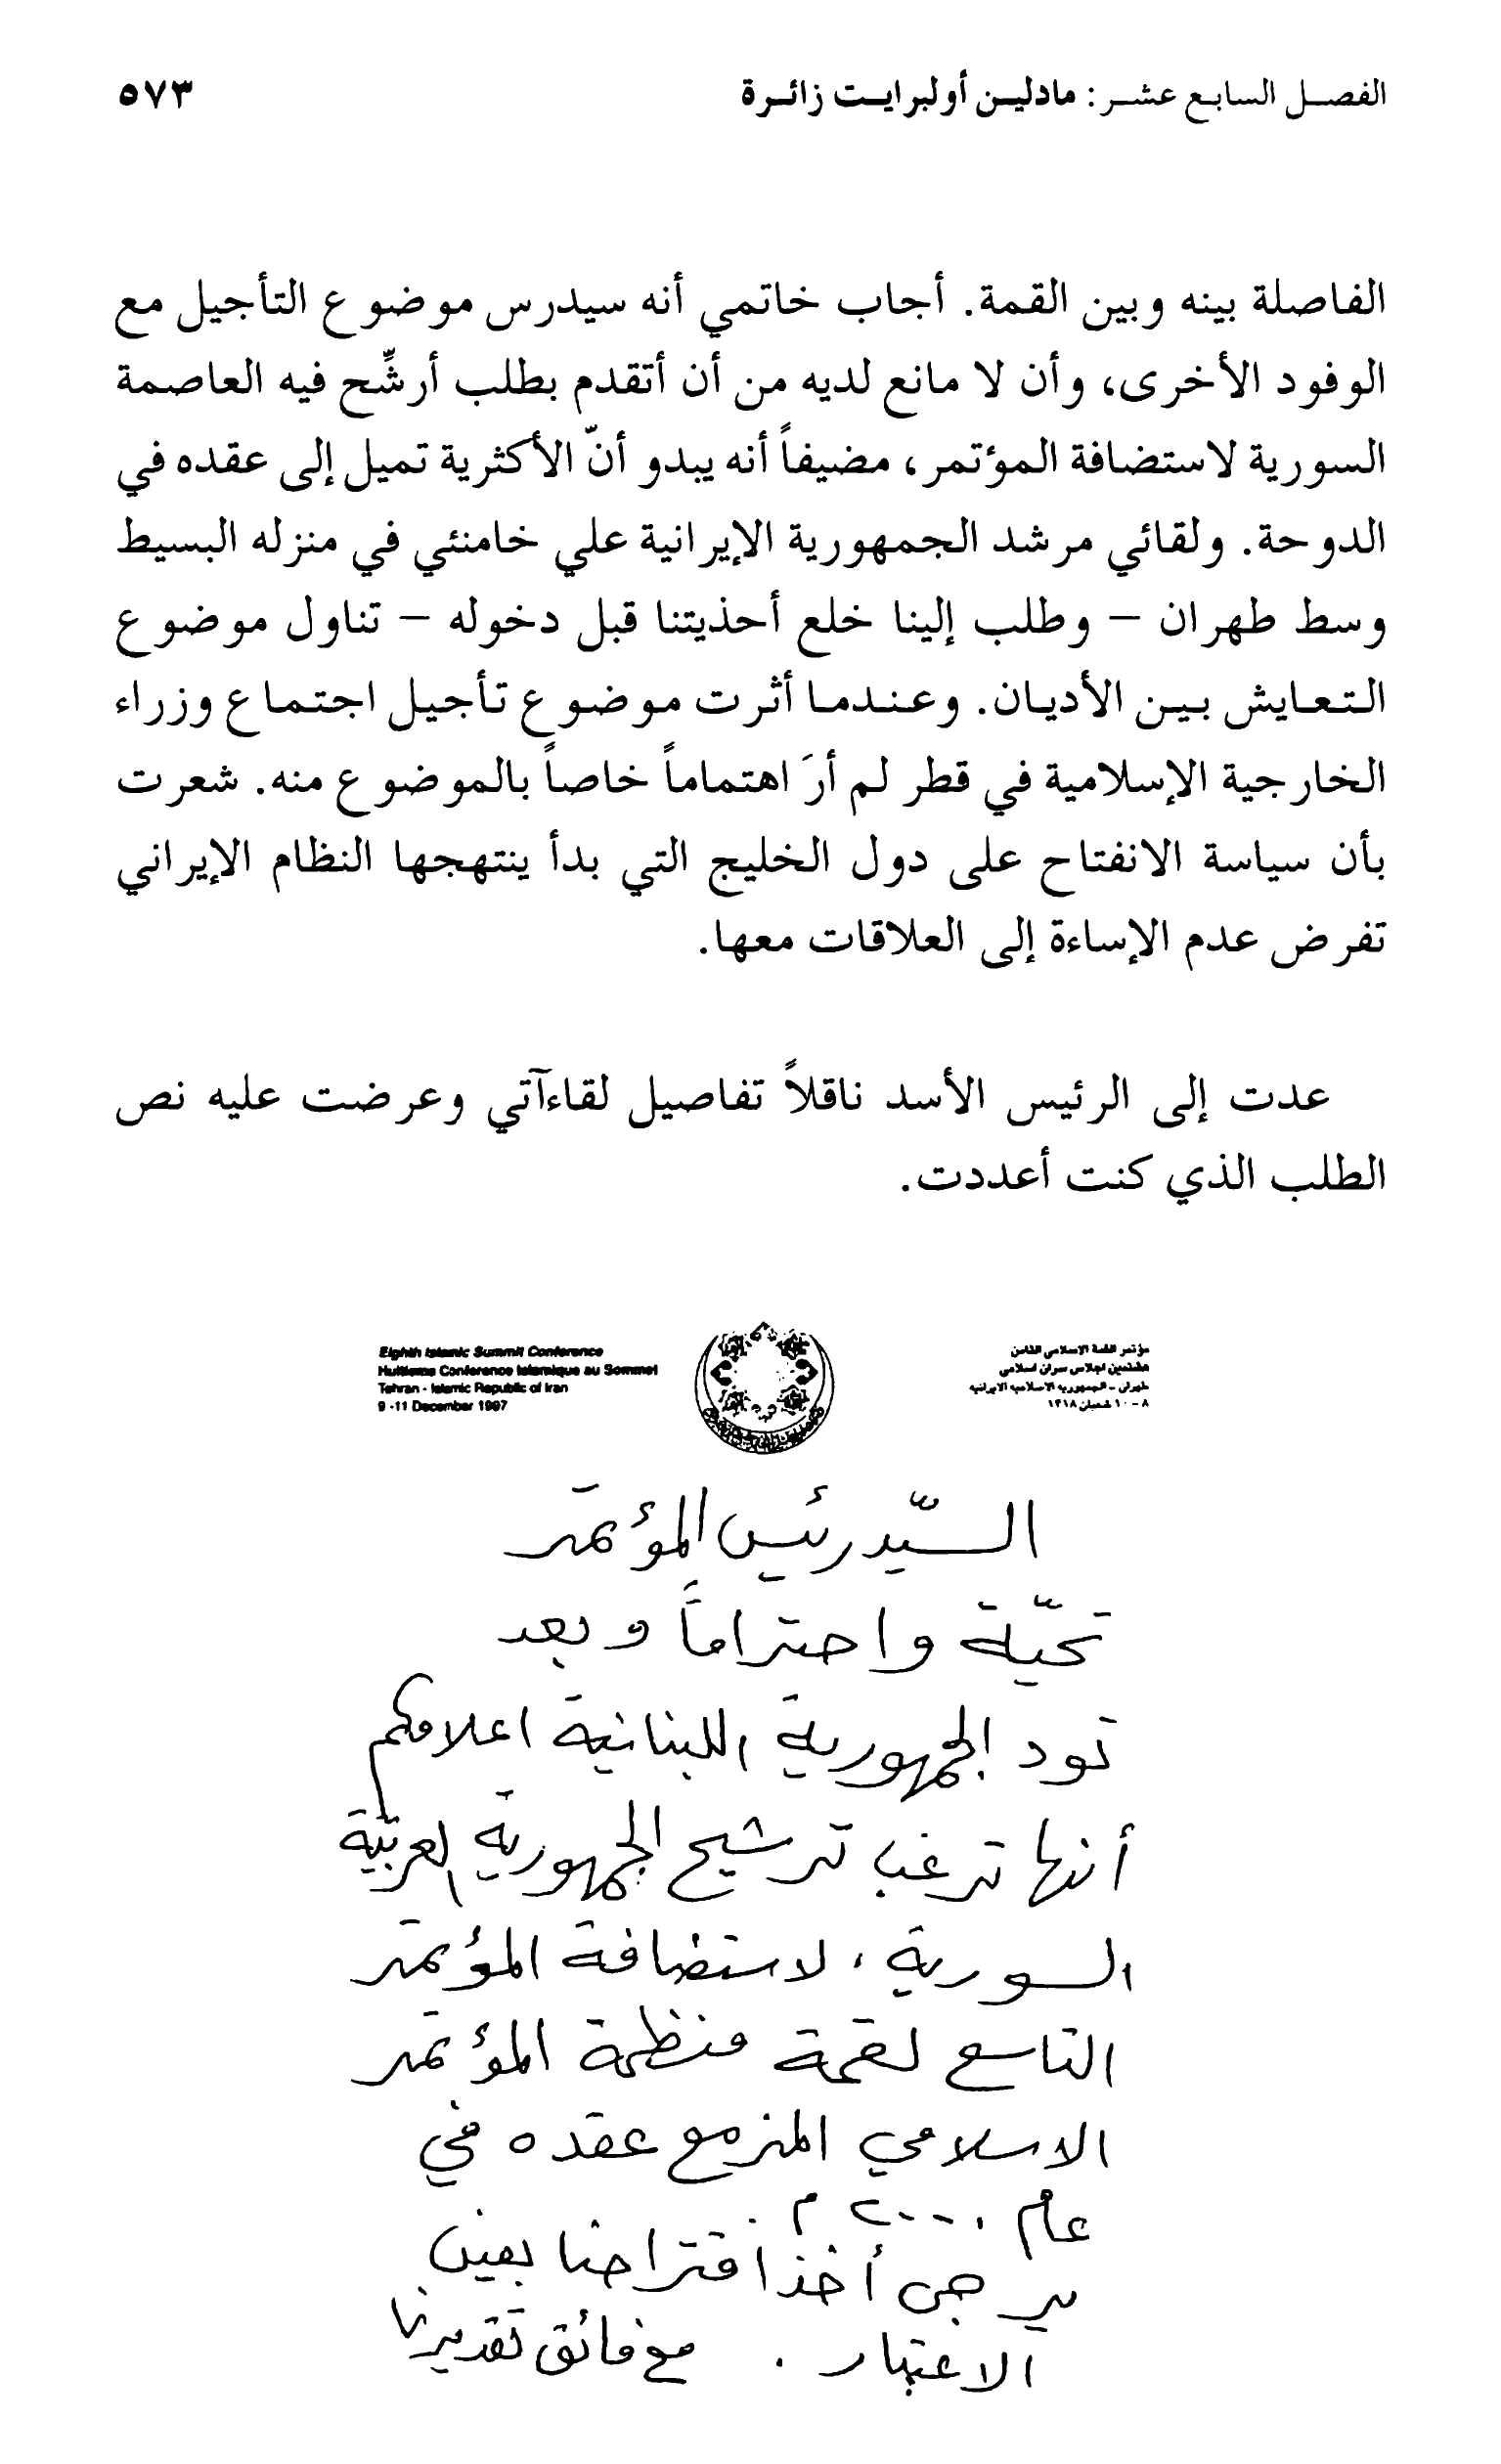 الفصل السابع عشر : مادلين أولبرايت زائرة ٥٧٣
الفاصلة بينه وبين القمة. أجاب خاتمي أنه سيدرس موضوع التأجيل مع
الوفود الأخرى، وأن لا مانع لديه من أن أتقدم بطلب أرشِّح فيه العاصمة
السورية لاستضافة المؤتمر، مضيفاً أنه يبدو أنّ الأكثرية تميل إلى عقده في
الدوحة. ولقائي مرشد الجمهورية الإيرانية علي خامنئي في منزله البسيط
وسط طهران – وطلب إلينا خلع أحذيتنا قبل دخوله – تناول موضوع
التعايش بين الأديان. وعندما أثرت موضوع تأجيل اجتماع وزراء
الخارجية الإسلامية في قطر لم أرَ اهتماماً خاصاً بالموضوع منه. شعرت
بأن سياسة الانفتاح على دول الخليج التي بدأ ينتهجها النظام الإيراني
تفرض عدم الإساءة إلى العلاقات معها.
عدت إلى الرئيس الأسد ناقلاً تفاصيل لقاءآتي وعرضت عليه نص
الطلب الذي كنت أعددت.
مؤتمر القمة الاسلامي الثامن
هشتمين اجلاس سران اسلامي
طهران - الجمهورية الاسلامية الايرانية
٨ - ١٠ شعبان ١٤١٨
Eighth Islamic Summit Conference
Huitieme Conference Islamique au Sommet
Tehran - Islamic Republic of Iran
9 -11 December 1997
السيّد رئيس المؤتمر
تحيّة واحتراماً وبعد
تود الجمهورية اللبنانية اعلامكم
أنها ترغب ترشيح الجمهورية العربيّة
السورية، لاستضافة المؤتمر
التاسع لقمة منظمة المؤتمر
الاسلامي المزمع عقده في
عام ٢٠٠٠ م.
يرجى أخذ اقتراحنا بعين
الاعتبار . مع فائق تقديرنا